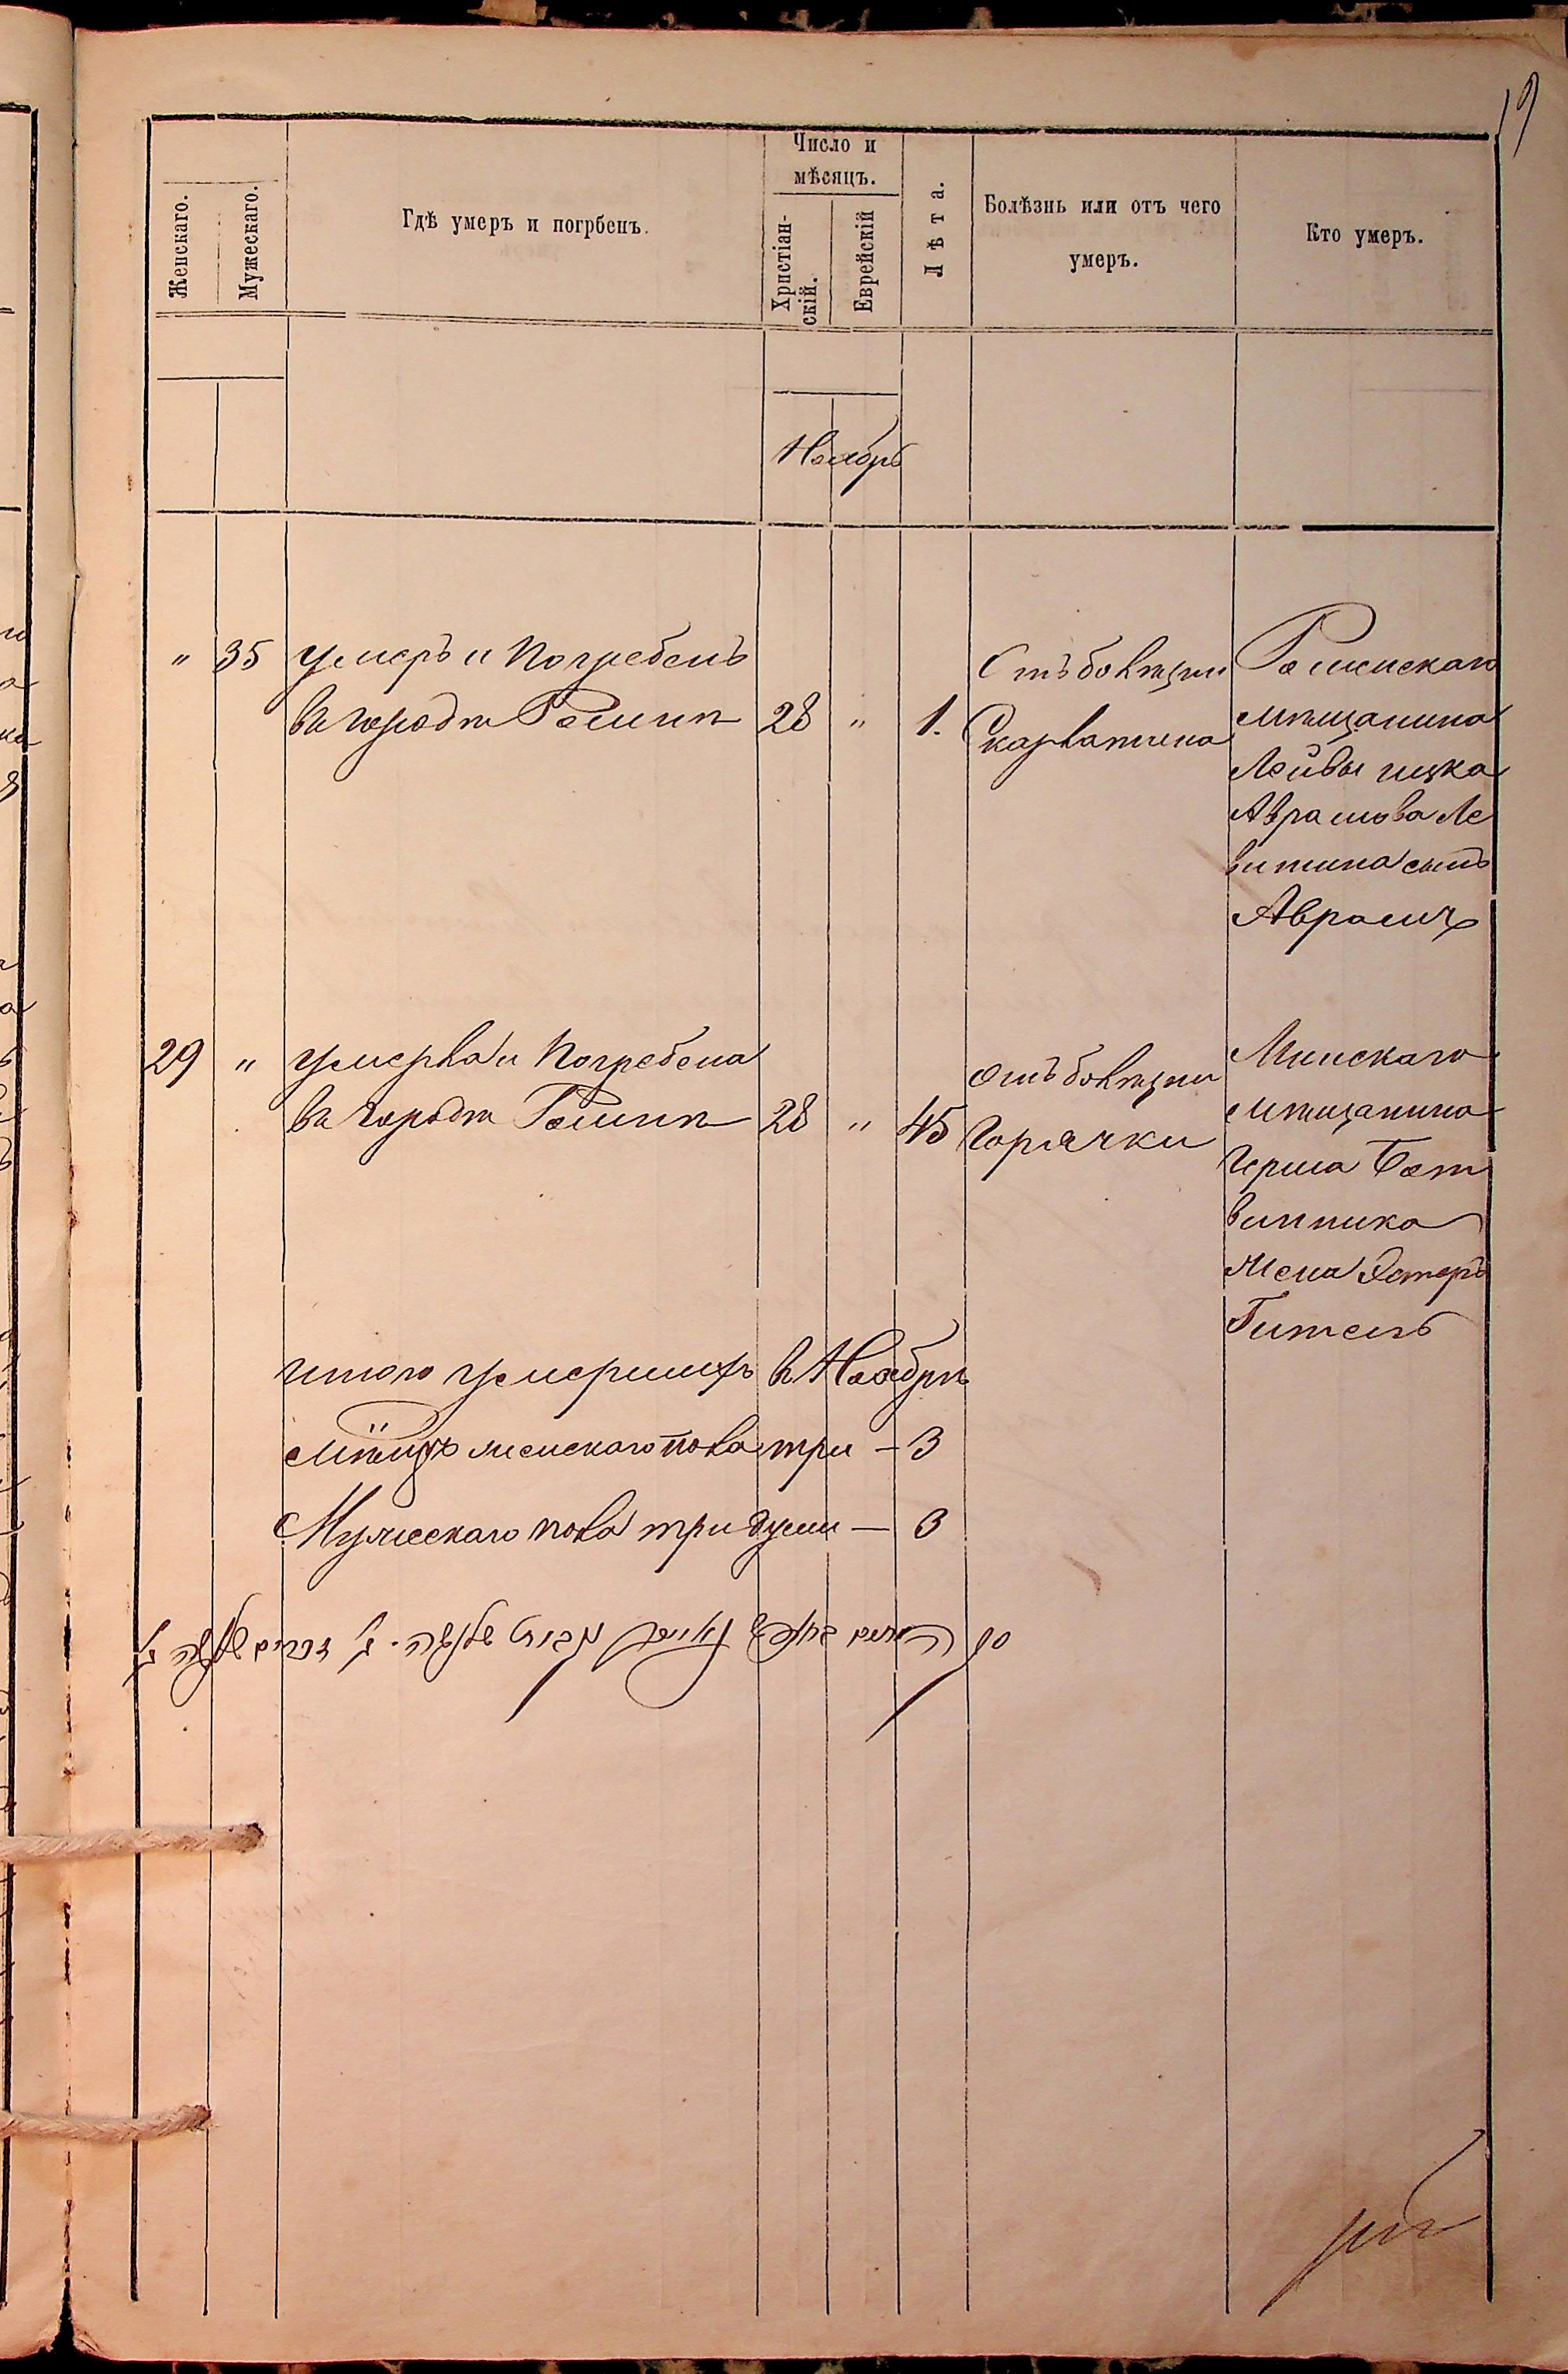 19
Число и
мѣсяцъ.
Женскаго.
Мужескаго.
Гдѣ умеръ и погрбенъ.
Христіан-
скій.
Еврейскій
Лѣта.
Болѣзнь или отъ чего
умеръ.
Кто умеръ.
Ноябрь
" 35 умеръ и Погребенъ
въ городѣ Ромнѣ 28 " 1.
Отъ болѣзни
Скарлатина
Роменскаго
мѣщанина
Лейбы ицка
Аврамова Ле
витина сынъ
Аврамъ
29 " умерла и Погребена
въ городѣ Ромнѣ 28 " 45
отъ болѣзни
Горячки
Минскаго
мѣщанина
Герша Бот
винника
жена Эстеръ
Гитель
итого умершихъ въ Ноябрѣ
мѣсяцѣ женскаго пола три — 3
Мужескаго пола три души — 3